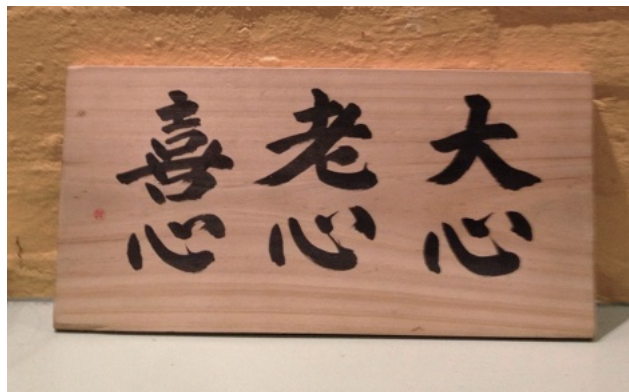 大心
老心
喜心